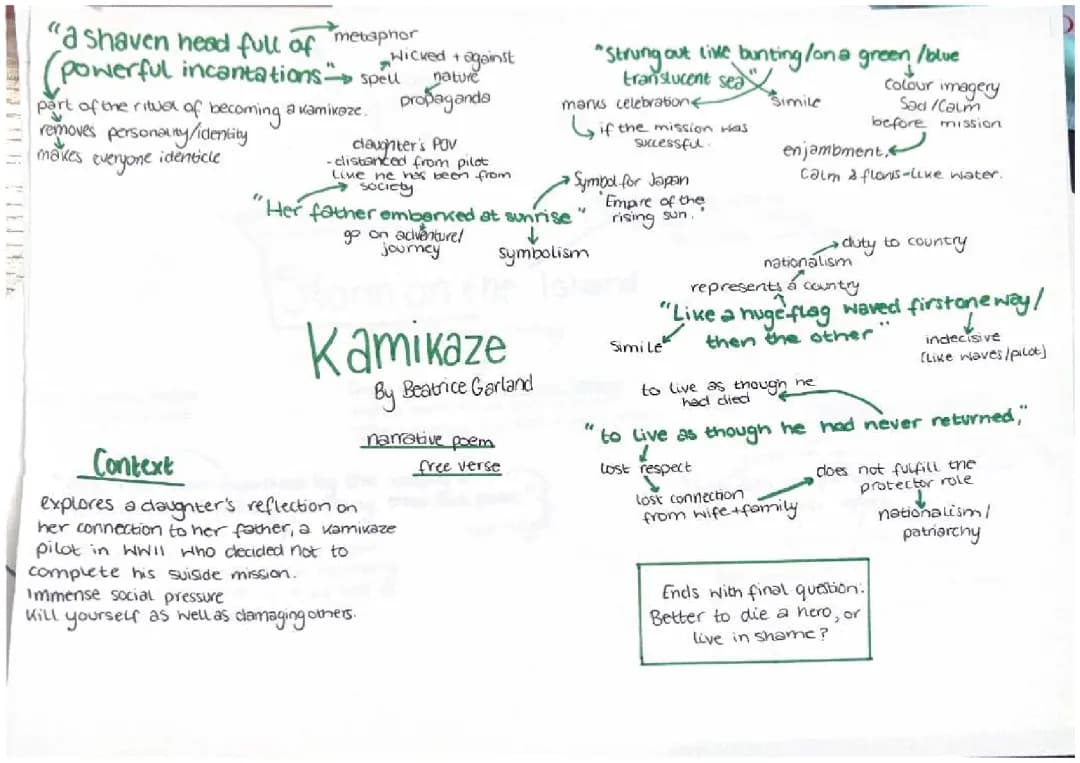 "a shaven head full of
powerful incantations"
metaphor
spell
wicked + against
nature
propaganda
part of the ritual of becoming a kamikaze.
removes personality/identity
makes everyone identicle
"Strung out like bunting/on a green/blue
translucent sea"
marks celebration
if the mission was
successful.
simile
colour imagery
Sad/Calm
before mission
enjambment,
calm & flows-like water.
daughter's POV
-distanced from pilot
like he has been from
society
"Her father embarked at sunrise"
go on adventure/
journey
symbolism
Symbol for Japan
"Empire of the
rising sun."
duty to country
nationalism
represents a country
"Like a huge flag waved first one way/
then the other"
simile
indecisive
(like waves/pilot)
Kamikaze
By Beatrice Garland
narrative poem
free verse
to live as though he
had died
"to live as though he had never returned,"
lost respect
lost connection
from wife+family
does not fulfill the
protector role
nationalism/
patriarchy
Context
explores a daughter's reflection on
her connection to her father, a kamikaze
pilot in WWII who decided not to
complete his suiside mission.
Immense social pressure
Kill yourself as well as damaging others.
Ends with final question:
Better to die a hero, or
live in shame?
Storm on the Island